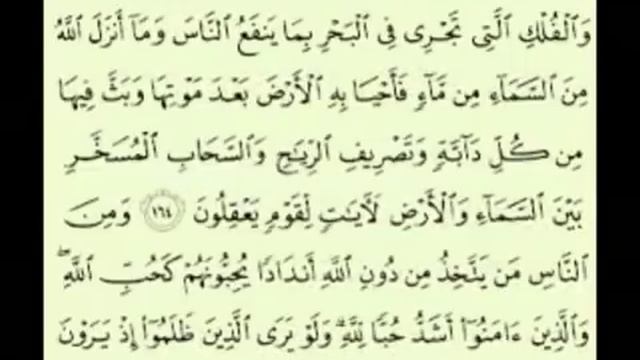 وَٱلْفُلْكِ ٱلَّتِى تَجْرِى فِى ٱلْبَحْرِ بِمَا يَنفَعُ ٱلنَّاسَ وَمَآ أَنزَلَ ٱللَّهُ
مِنَ ٱلسَّمَآءِ مِن مَّآءٍ فَأَحْيَا بِهِ ٱلْأَرْضَ بَعْدَ مَوْتِهَا وَبَثَّ فِيهَا
مِن كُلِّ دَآبَّةٍ وَتَصْرِيفِ ٱلرِّيَٰحِ وَٱلسَّحَابِ ٱلْمُسَخَّرِ
بَيْنَ ٱلسَّمَآءِ وَٱلْأَرْضِ لَءَايَٰتٍ لِّقَوْمٍ يَعْقِلُونَ ١٦٤ وَمِنَ
ٱلنَّاسِ مَن يَتَّخِذُ مِن دُونِ ٱللَّهِ أَندَادًا يُحِبُّونَهُمْ كَحُبِّ ٱللَّهِ ۖ
وَٱلَّذِينَ ءَامَنُوٓا۟ أَشَدُّ حُبًّا لِّلَّهِ ۗ وَلَوْ يَرَى ٱلَّذِينَ ظَلَمُوٓا۟ إِذْ يَرَوْنَ